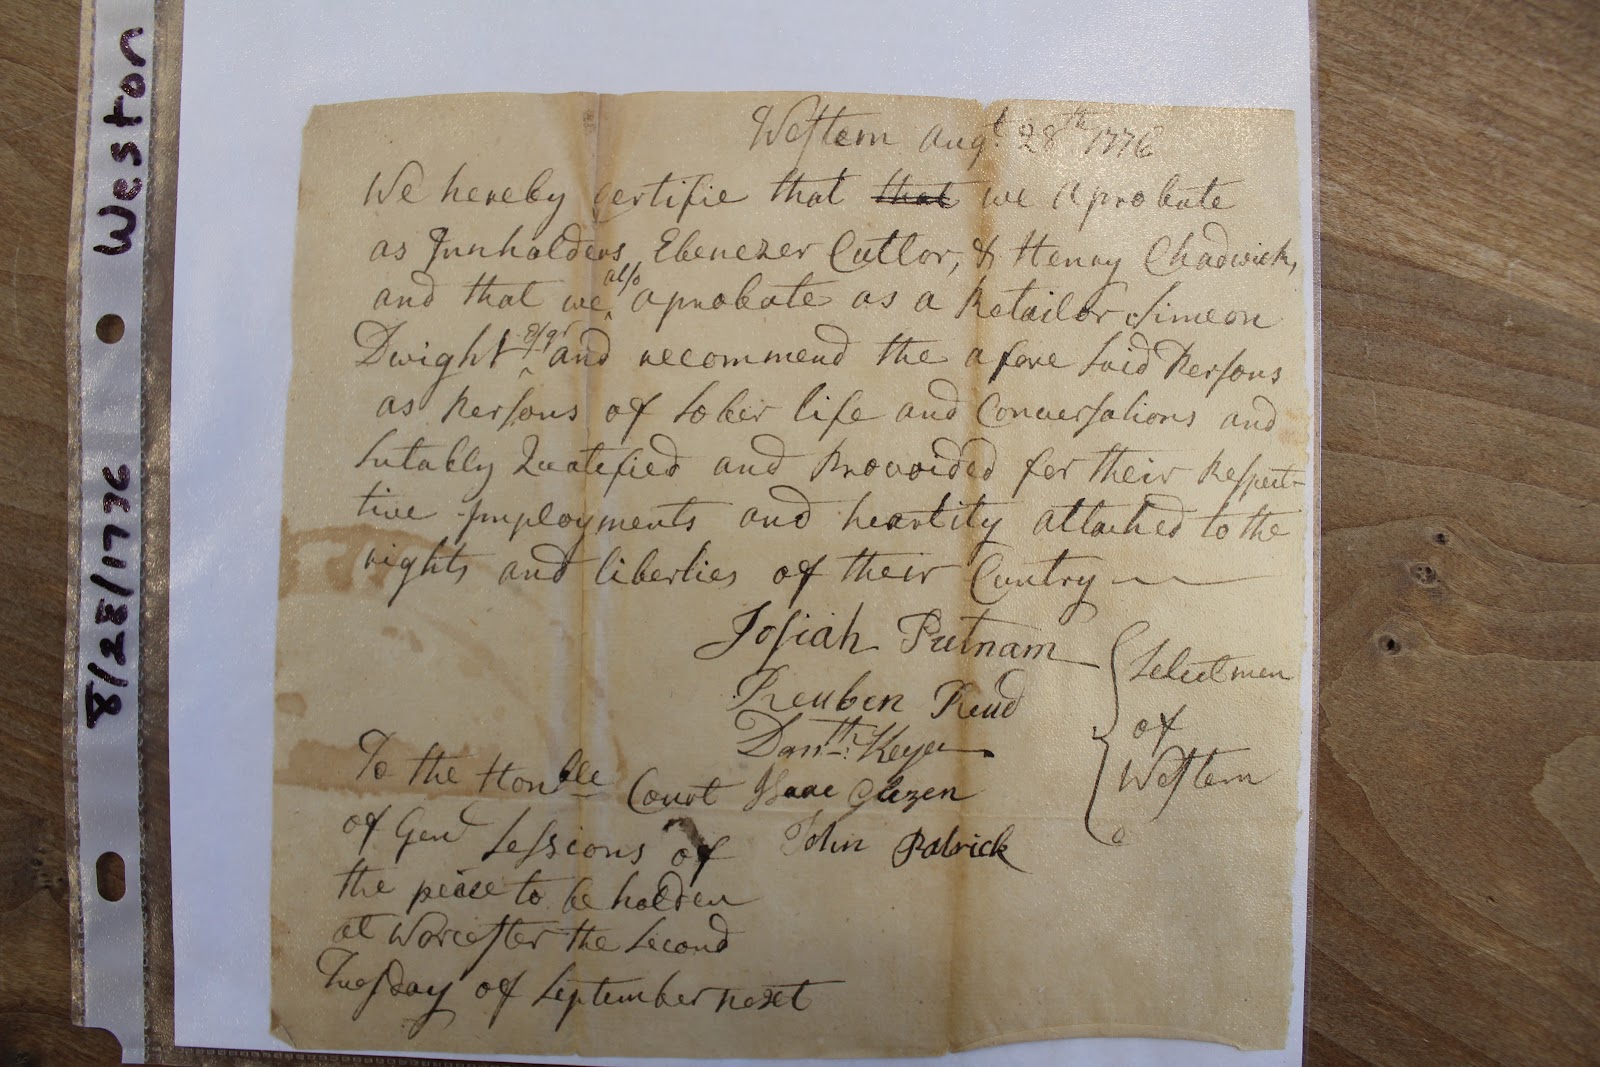 Weston
8/28/1776
Western Augt. 28th 1776
We hereby certifie that that we aprobate
as Innholders Ebenezer Cutlor, & Henry Chadwick,
and that we also aprobate as a Retailor Simeon
Dwight esqr and recommend the afore said Persons
as Persons of sober life and Conversations and
sutably Qualefied and Provoided for their Respect-
tive Imployments and heartity attached to the
rights and liberties of their Cuntry
Josiah Putnam
Reuben Read
Danll: Keyes
Isaac Glezen
John Patrick
Selectmen
of
Western
To the Honble Court
of Genl Sessions of
the peace to be holden
at Worcester the second
Tuesday of September next